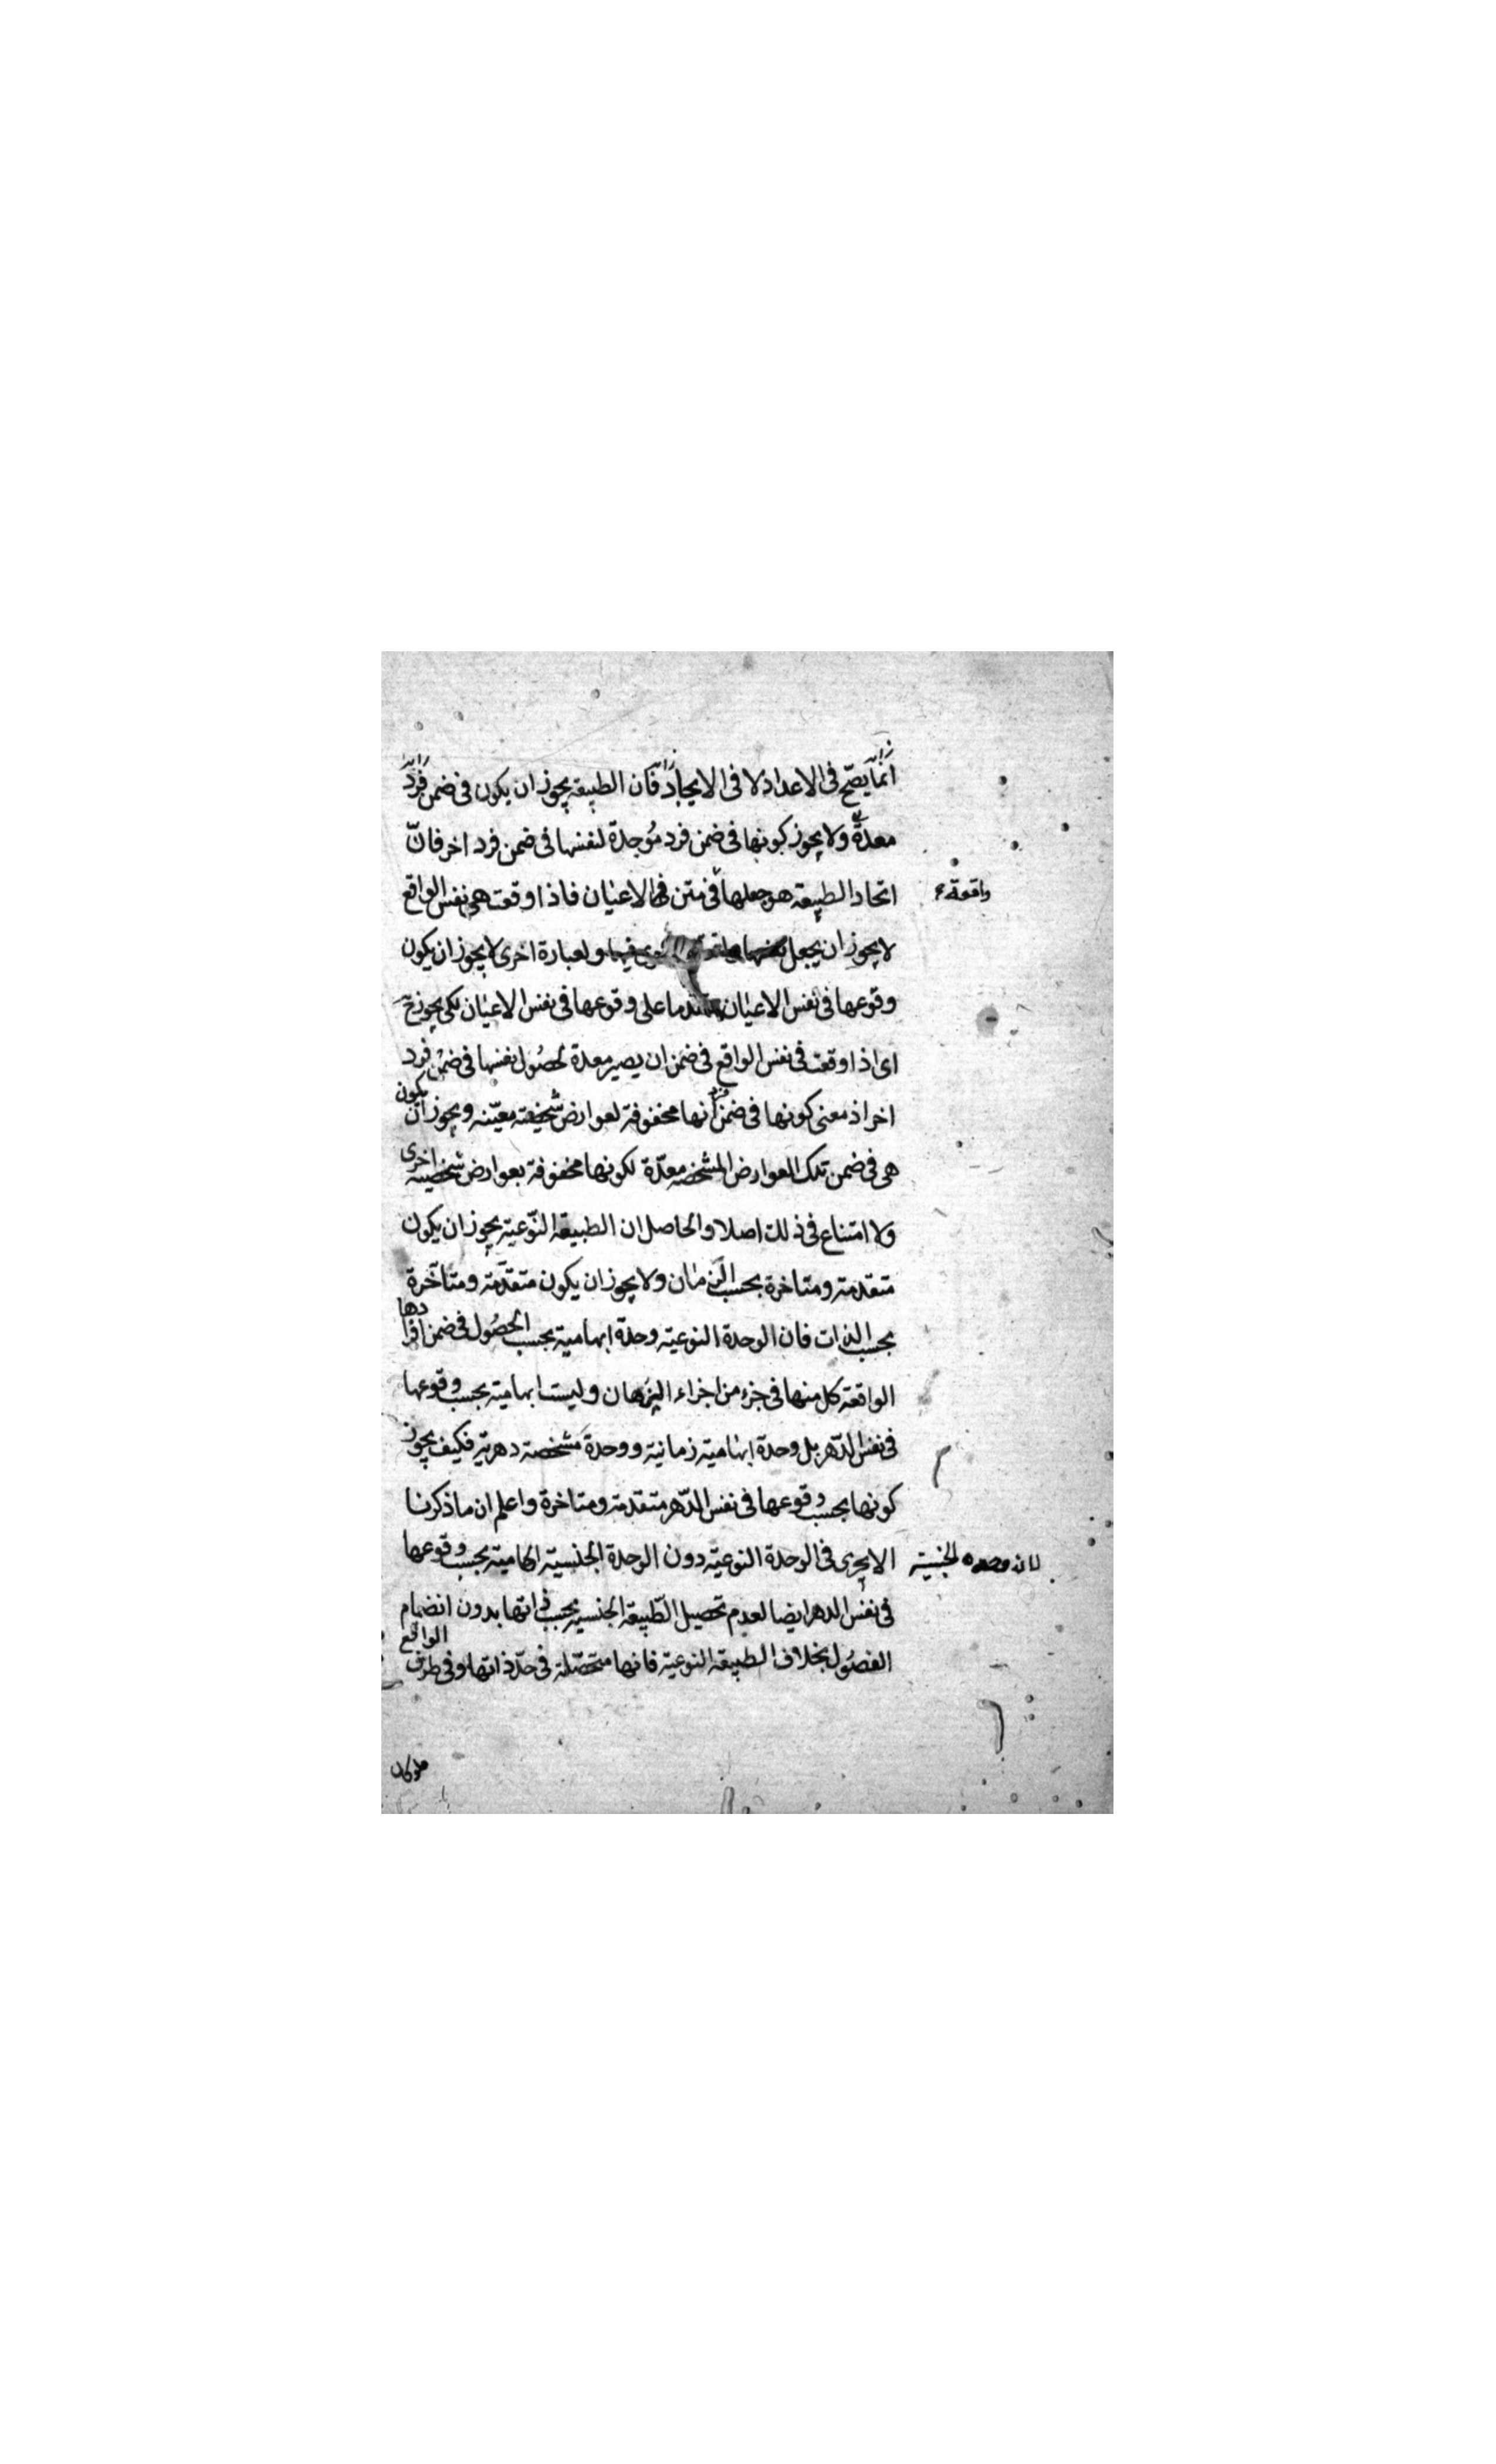 انما يصح فى الاعداد لا فى الايجاد فان الطبيعة يجوز ان يكون فى ضمن فرد
معدة ولا يجوز كونها فى ضمن فرد موجدة لنفسها فى ضمن فرد اخر فانّ
اتحاد الطبيعة هو جعلها فى متن الاعيان فاذا وقعت هى نفس الواقع
واقعة
لا يجوز ان يجعل ولعبارة اخرى لا يجوز ان يكون
وقوعها فى نفس الاعيان متقدما على وقوعها فى نفس الاعيان لكى يجوز ح
اى اذا وقعت فى نفس الواقع فى ضمن ان يصير معدة لحصول نفسها فى ضمن فرد
اخر اذ معنى كونها فى ضمن فرد انها محفوفة لعوارض شخصية معيّنه ويجوز ان يكون
هى فى ضمن تلك العوارض المشخصه معدّة لكونها محفوفة بعوارض شخصية اخرى
ولا امتناع فى ذلك اصلا والحاصل ان الطبيعة النّوعية يجوز ان يكون
متقدمة ومتاخرة بحسب الزمان ولا يجوز ان يكون متقدّمة ومتاخّرة
بحسب الذات فان الوحدة النوعية وحدة ابهامية بحسب الحصول فى ضمن افرادها
الواقعة كل منها فى جزء من اجزاء الزمان وليست ابهامية بحسب وقوعها
فى نفس الدّهر بل وحدة ابهامية زمانية ووحدة مشخصة دهرية فكيف يجوز
كونها بحسب وقوعها فى نفس الدّهر متقدمة ومتاخرة واعلم ان ما ذكرنا
الا يجرى فى الوحدة النوعية دون الوحدة الجنسية ابهامية بحسب وقوعها
لان وحده الجنسية
فى نفس الدهر ايضا لعدم تحصيل الطّبيعة الجنسية بحسب ذاتها بدون انضمام
الفصول بخلاف الطبيعة النوعية فانها متحصّلة فى حدّ ذاتها وفى طرف الواقع